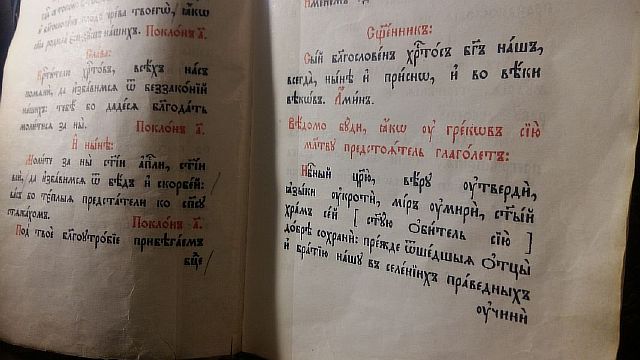 твоегѡ̀, ꙗ҆́кѡ
нашихъ. Поклѡ́нъ а҃.
Сла́ва:
Крⷭ҇ти́телю хрⷭ҇то́въ, всѣ́хъ на́съ
помѧнѝ, да и҆зба́вимсѧ ѿ беззако́нїй
на́шихъ: тебѣ́ бо даде́сѧ благода́ть
моли́тисѧ за ны̀. Покло́нъ а҃.
И҆ ны́нѣ:
Моли́ту за ны̀ ст҃і́и а҆пⷭ҇ли, ст҃і́и
всѝ, да и҆зба́вимсѧ ѿ бѣ́дъ и҆ скорбе́й:
ва́съ бо тє́плыѧ предста́тели ко сп҃су
стѧжа́хомъ. Покло́нъ а҃.
Под̾ твоѐ благоꙋтро́бїе прибѣга́емъ
бц҃е
Сщ҃е́нникъ:
Сы́й благослове́нъ хрⷭ҇то́съ бг҃ъ на́шъ,
всегда̀, ны́нѣ и҆ при́снѡ, и҆ во вѣ́ки
вѣкѡ́въ. А҆ми́нь.
Вѣ́домо бꙋ́ди, ꙗ҆́кѡ ᲂу҆ гре́кѡвъ сїю̀
мл҃тву предстоѧ́тель глаго́летъ:
Нбⷭ҇ный цр҃ю̀, вѣ́рꙋ ᲂу҆твердѝ,
ꙗ҆зы́ки ᲂу҆кротѝ, мі́ръ ᲂу҆мирѝ, ст҃ы́й
хра́мъ се́й [ ст҃ꙋ́ю ѻ҆би́тель сїю̀ ]
до́брѣ сохранѝ: пре́жде ѿше́дшыѧ ѻ҆тцы̀
и҆ бра́тїю на́шꙋ въ селе́нїихъ пра́ведныхъ
ᲂу҆чинѝ